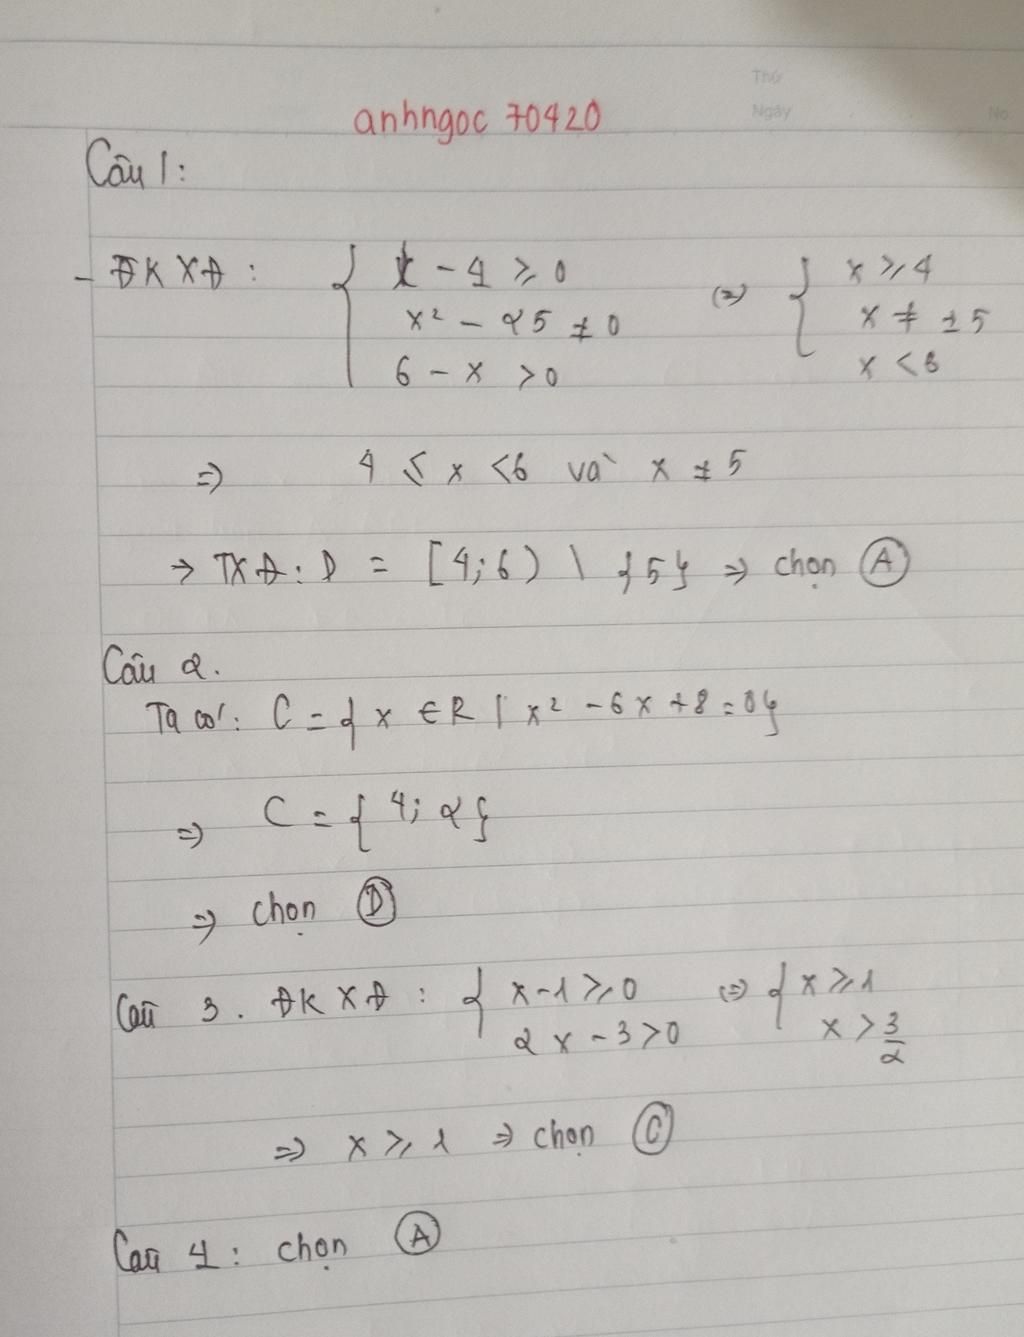 Thứ
Ngày
No.
anhngoc 70420
Câu 1:
- ĐKXĐ: { x - 4 ⩾ 0 (=) { x ⩾ 4
x² - 25 ≠ 0 x ≠ ±5
6 - x > 0 x < 6
=) 4 ≤ x < 6 và x ≠ 5
→ TXĐ: D = [4; 6) \ {5} => chọn (A)
Câu 2.
Ta có: C = { x ∈ R | x² - 6x + 8 = 0}
=) C = { 4; 2 }
=) chọn (D)
Câu 3. ĐKXĐ: { x - 1 ⩾ 0 (=) { x ⩾ 1
2x - 3 > 0 x > 3/2
=) x ⩾ 1 => chọn (C)
Câu 4: chọn (A)